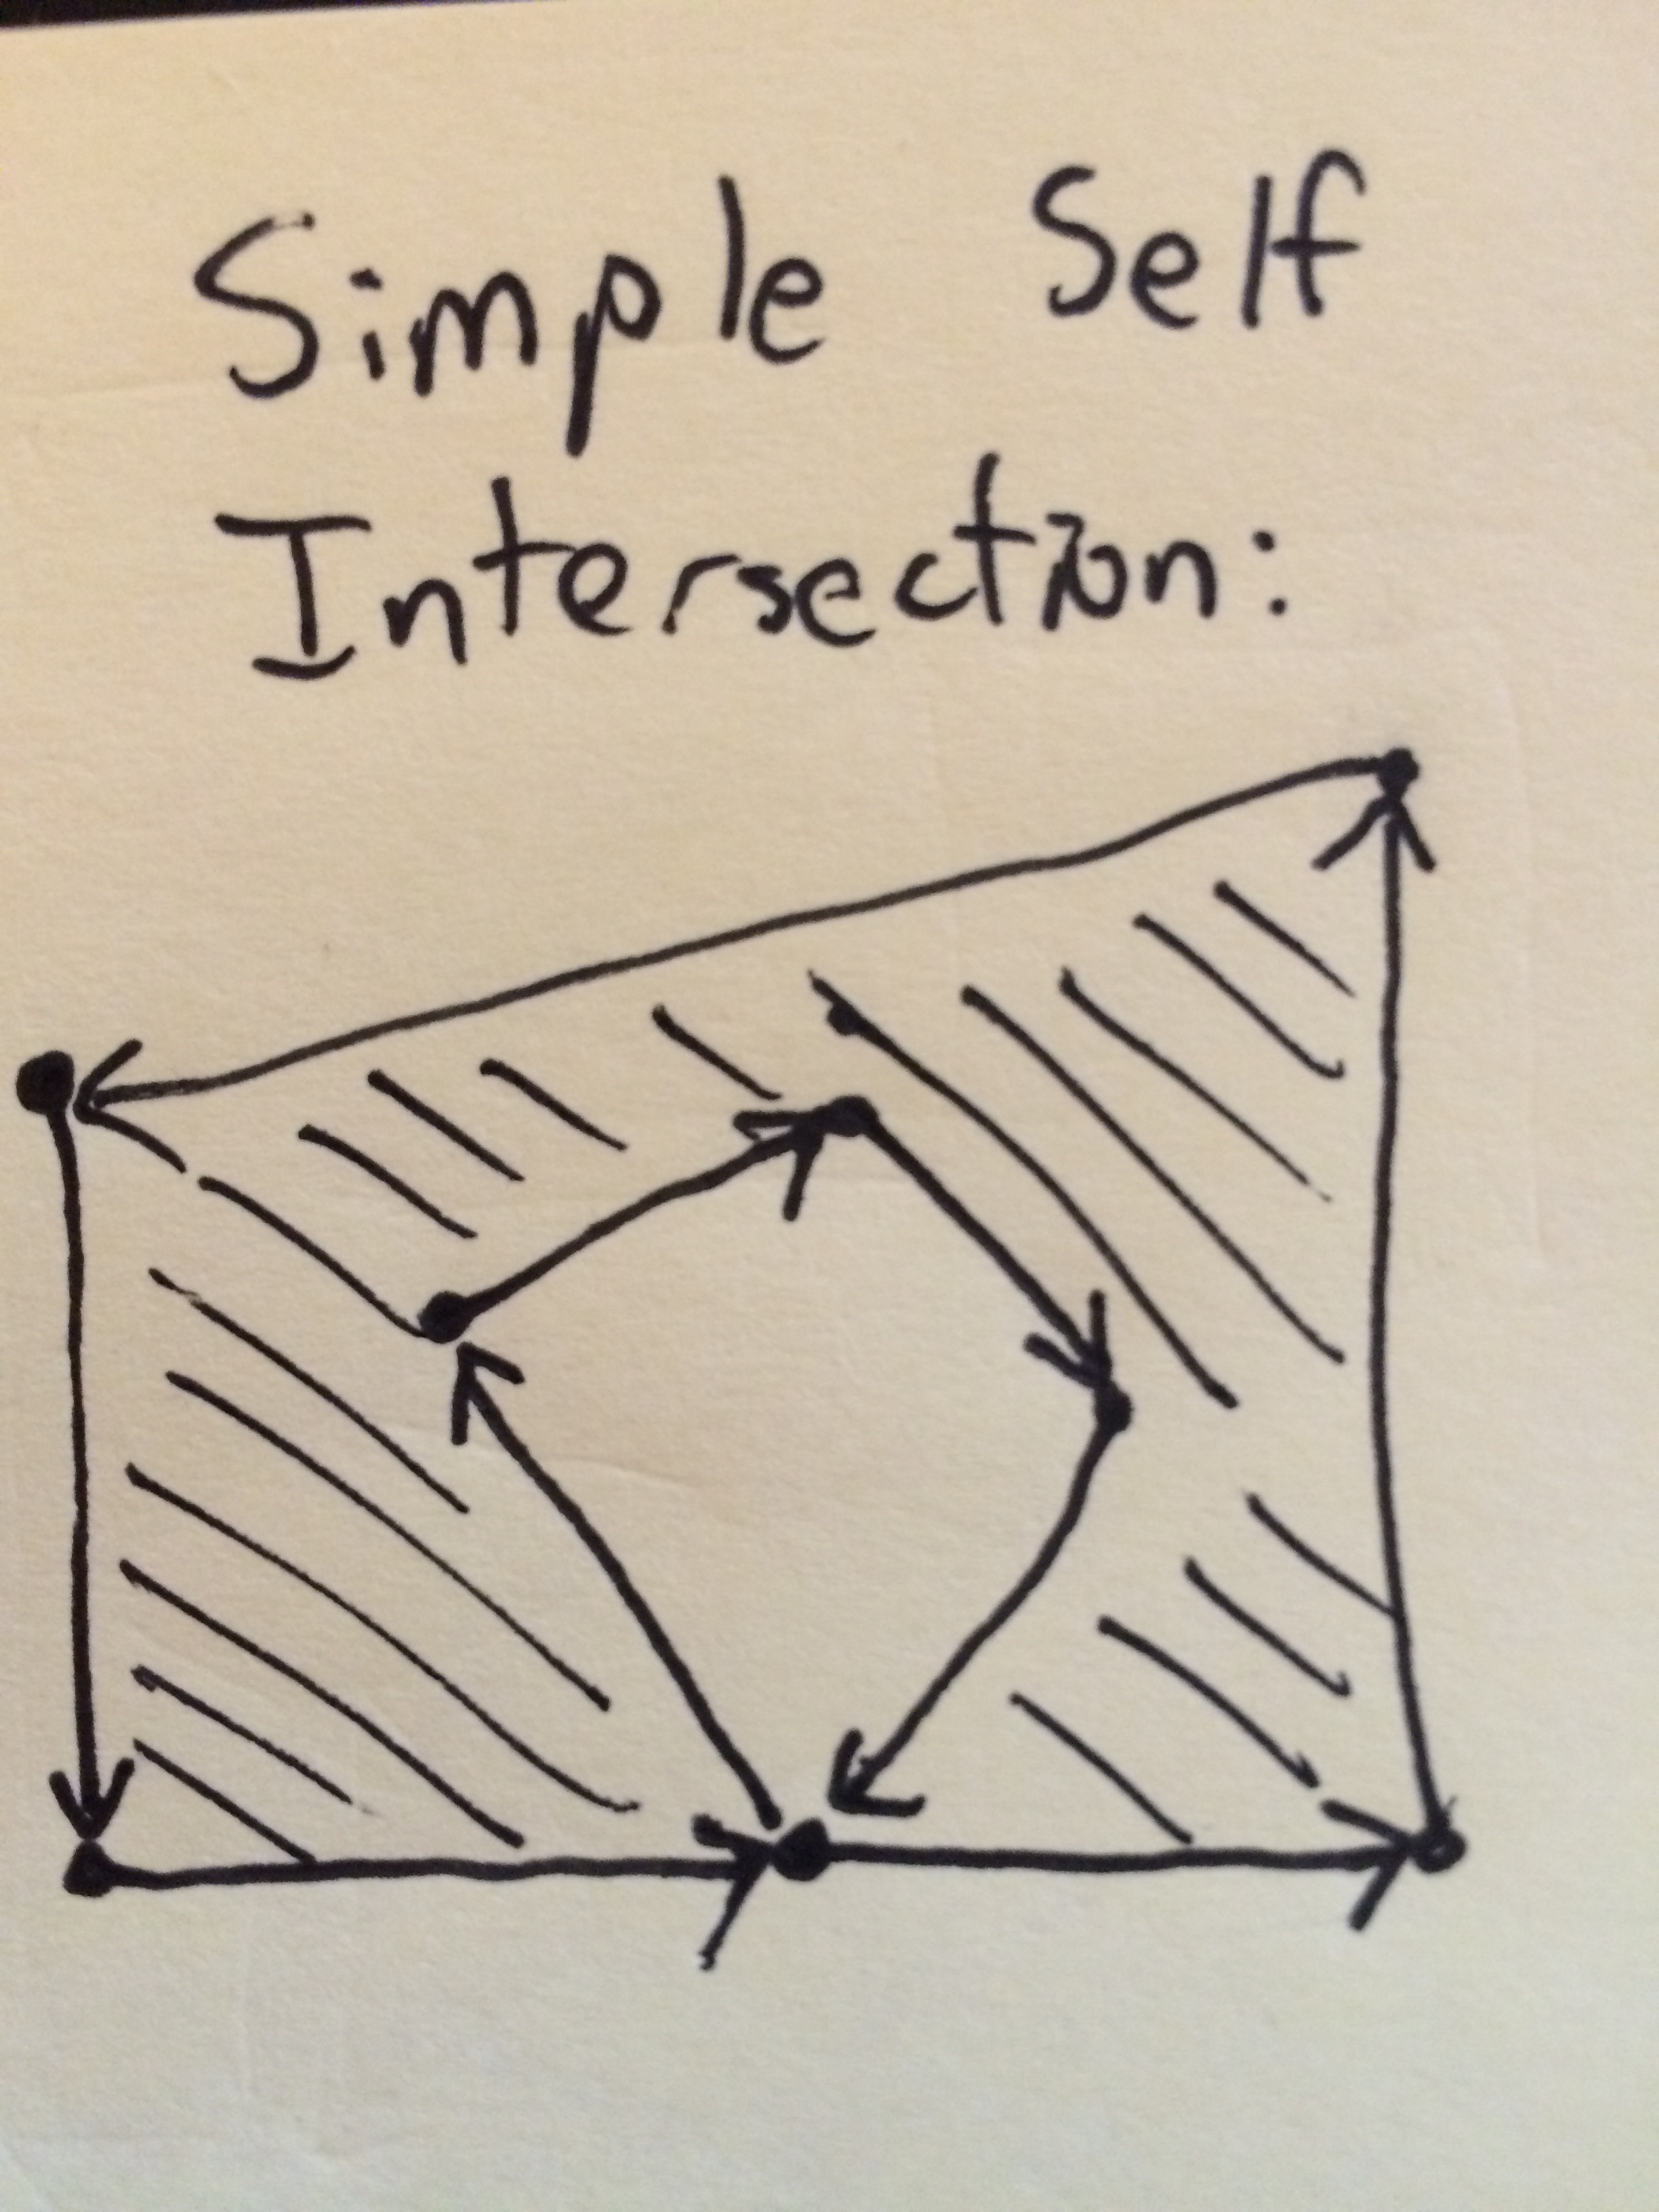 Simple Self
Intersection: